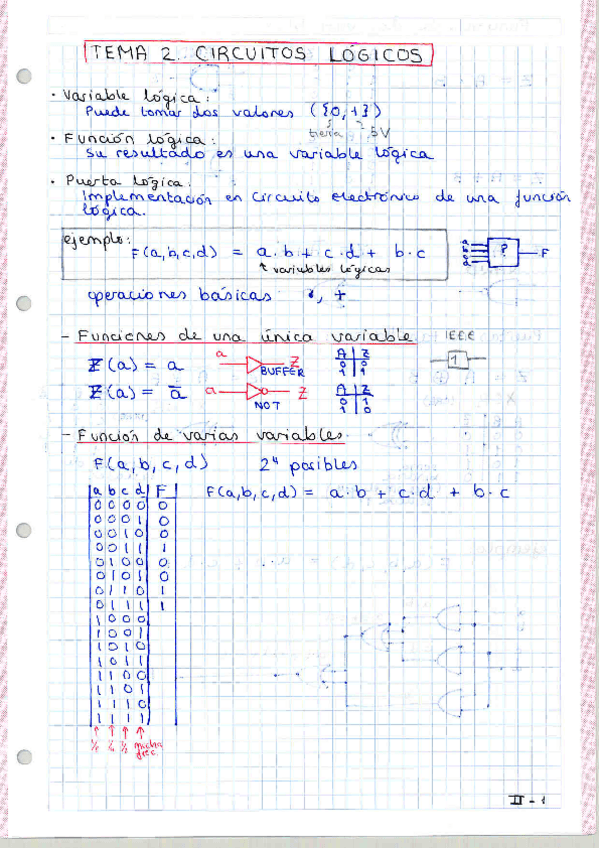 TEMA 2. CIRCUITOS LÓGICOS
· Variable lógica:
Puede tomar dos valores ({0,1})
tierra 5V
· Función lógica:
Su resultado es una variable lógica
· Puerta lógica:
Implementación en circuito electrónico de una función
lógica.
ejemplo:
F(a,b,c,d) = a·b + c·d + b·c
variables lógicas
a
b
c
d
? F
operaciones básicas ·, +
- Funciones de una única variable IEEE
Z(a) = a a Z BUFFER
A Z
0 0
1 1
1
Z(a) = ā a Z NOT
A Z
0 1
1 0
- Función de varias variables.
F(a,b,c,d) 2⁴ posibles
a b c d F F(a,b,c,d) = a·b + c·d + b·c
0 0 0 0 0
0 0 0 1 0
0 0 1 0 0
0 0 1 1 1
0 1 0 0 0
0 1 0 1 0
0 1 1 0 1
0 1 1 1 1
1 0 0 0
1 0 0 1
1 0 1 0
1 0 1 1
1 1 0 0
1 1 0 1
1 1 1 0
1 1 1 1
mucha
frec.
II - 1